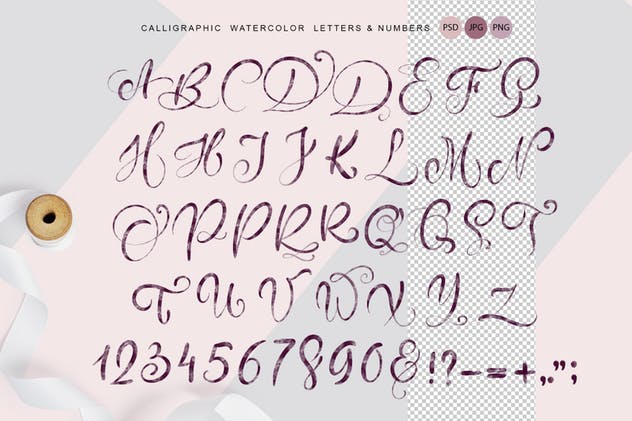 CALLIGRAPHIC WATERCOLOR LETTERS & NUMBERS PSD JPG PNG
A B C D D E F G
H H I J K L M N
O P P R R Q G S T
T U V W X Y Z
1 2 3 4 5 6 7 8 9 0 & ! ? - = + , . " ;